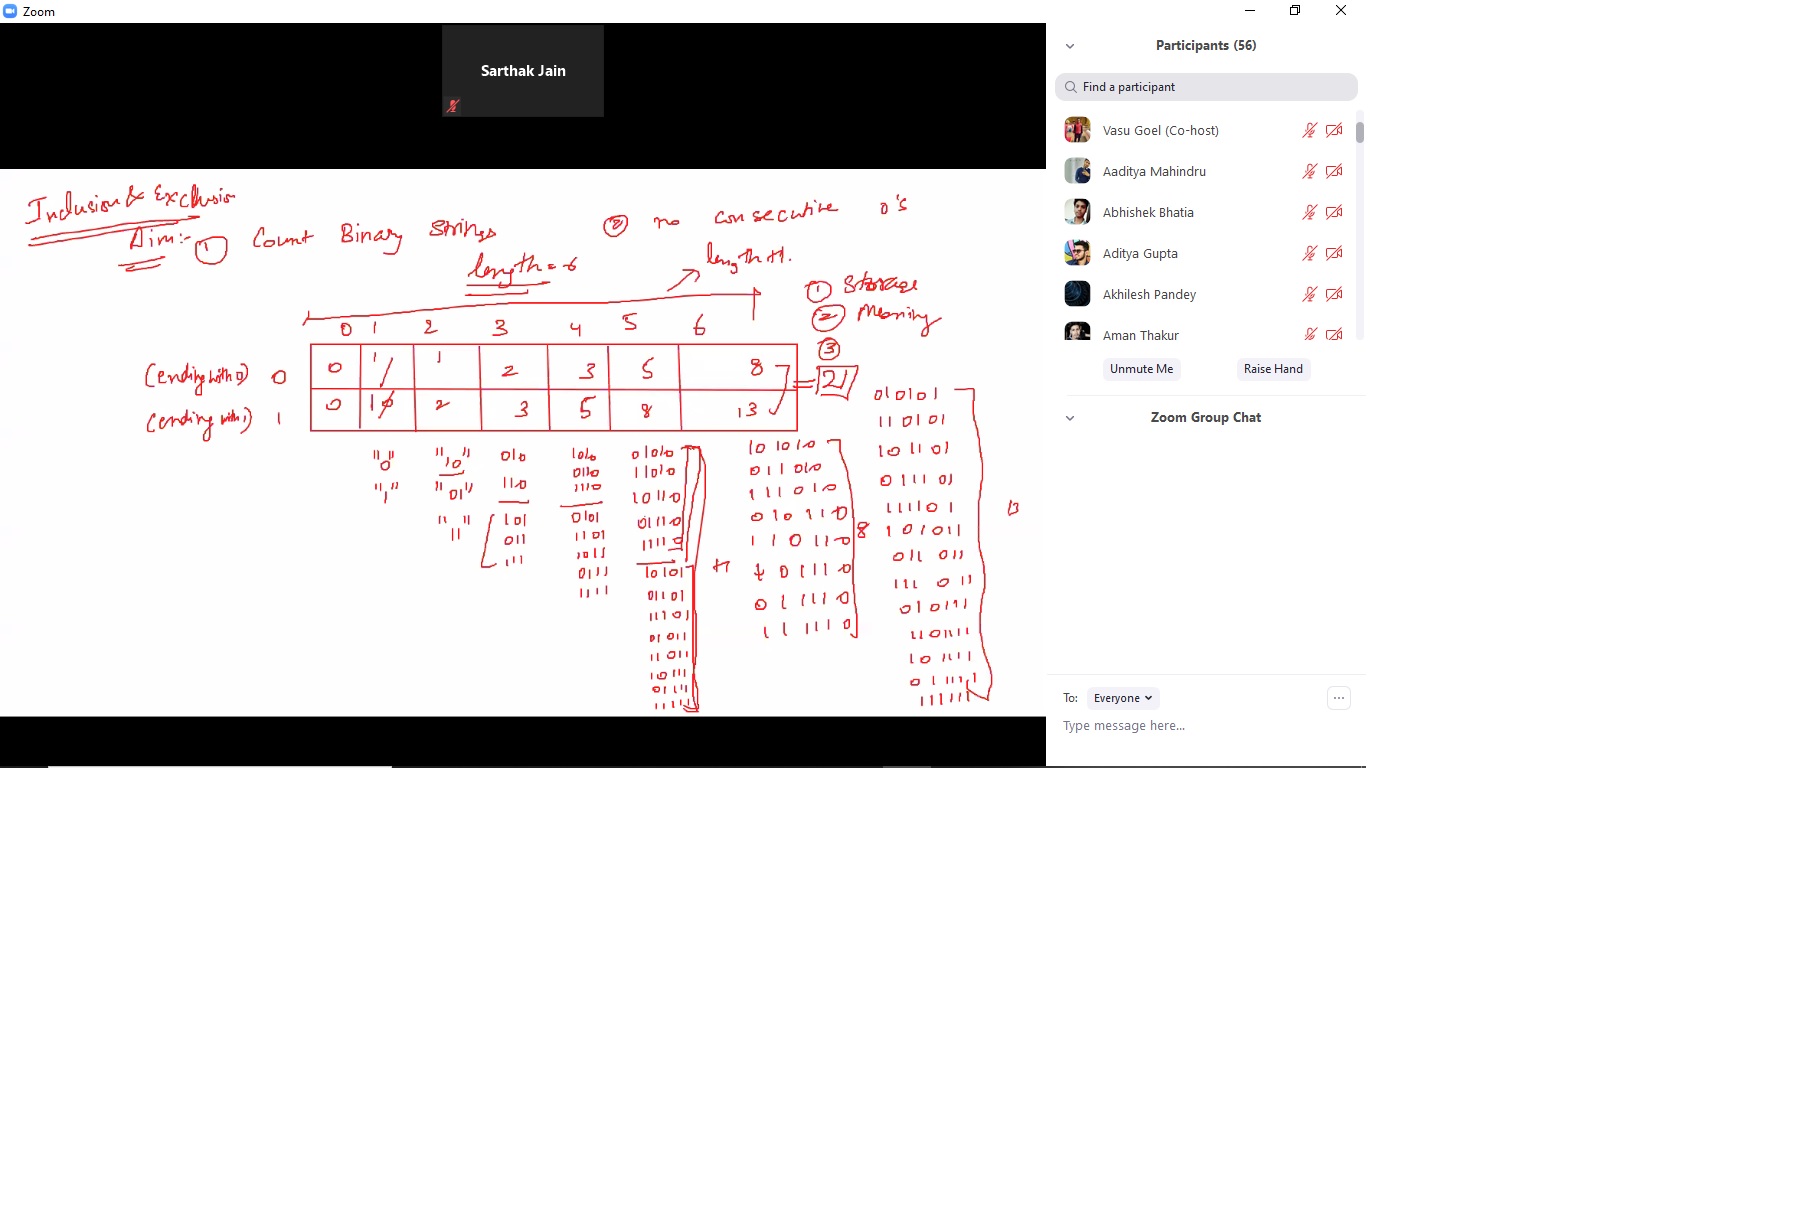 Zoom
Sarthak Jain
Inclusion & Exclusion
Aim:- ① Count Binary Strings ② no consecutive 0's
length = 6
length+1.
① Storage
② Meaning
③
0 1 2 3 4 5 6
(ending with 0) 0 0 1 1 2 3 5 8
(ending with 1) 1 0 1 0 2 3 5 8 13
= 21
"0" "10" 010 1010 01010 101010 010101
"1" "01" 110 0110 11010 011010 110101
"11" 101 1110 10110 111010 101101
011 0101 01110 010110 011101
111 1101 11110 110110 8 111101 13
1011 10101 101110 101011
0111 01101 011110 011011
1111 11101 111110 111011
01011 010111
11011 110111
10111 101111
01111 011111
11111 111111
Participants (56)
Find a participant
Vasu Goel (Co-host)
Aaditya Mahindru
Abhishek Bhatia
Aditya Gupta
Akhilesh Pandey
Aman Thakur
Unmute Me Raise Hand
Zoom Group Chat
To: Everyone ...
Type message here...